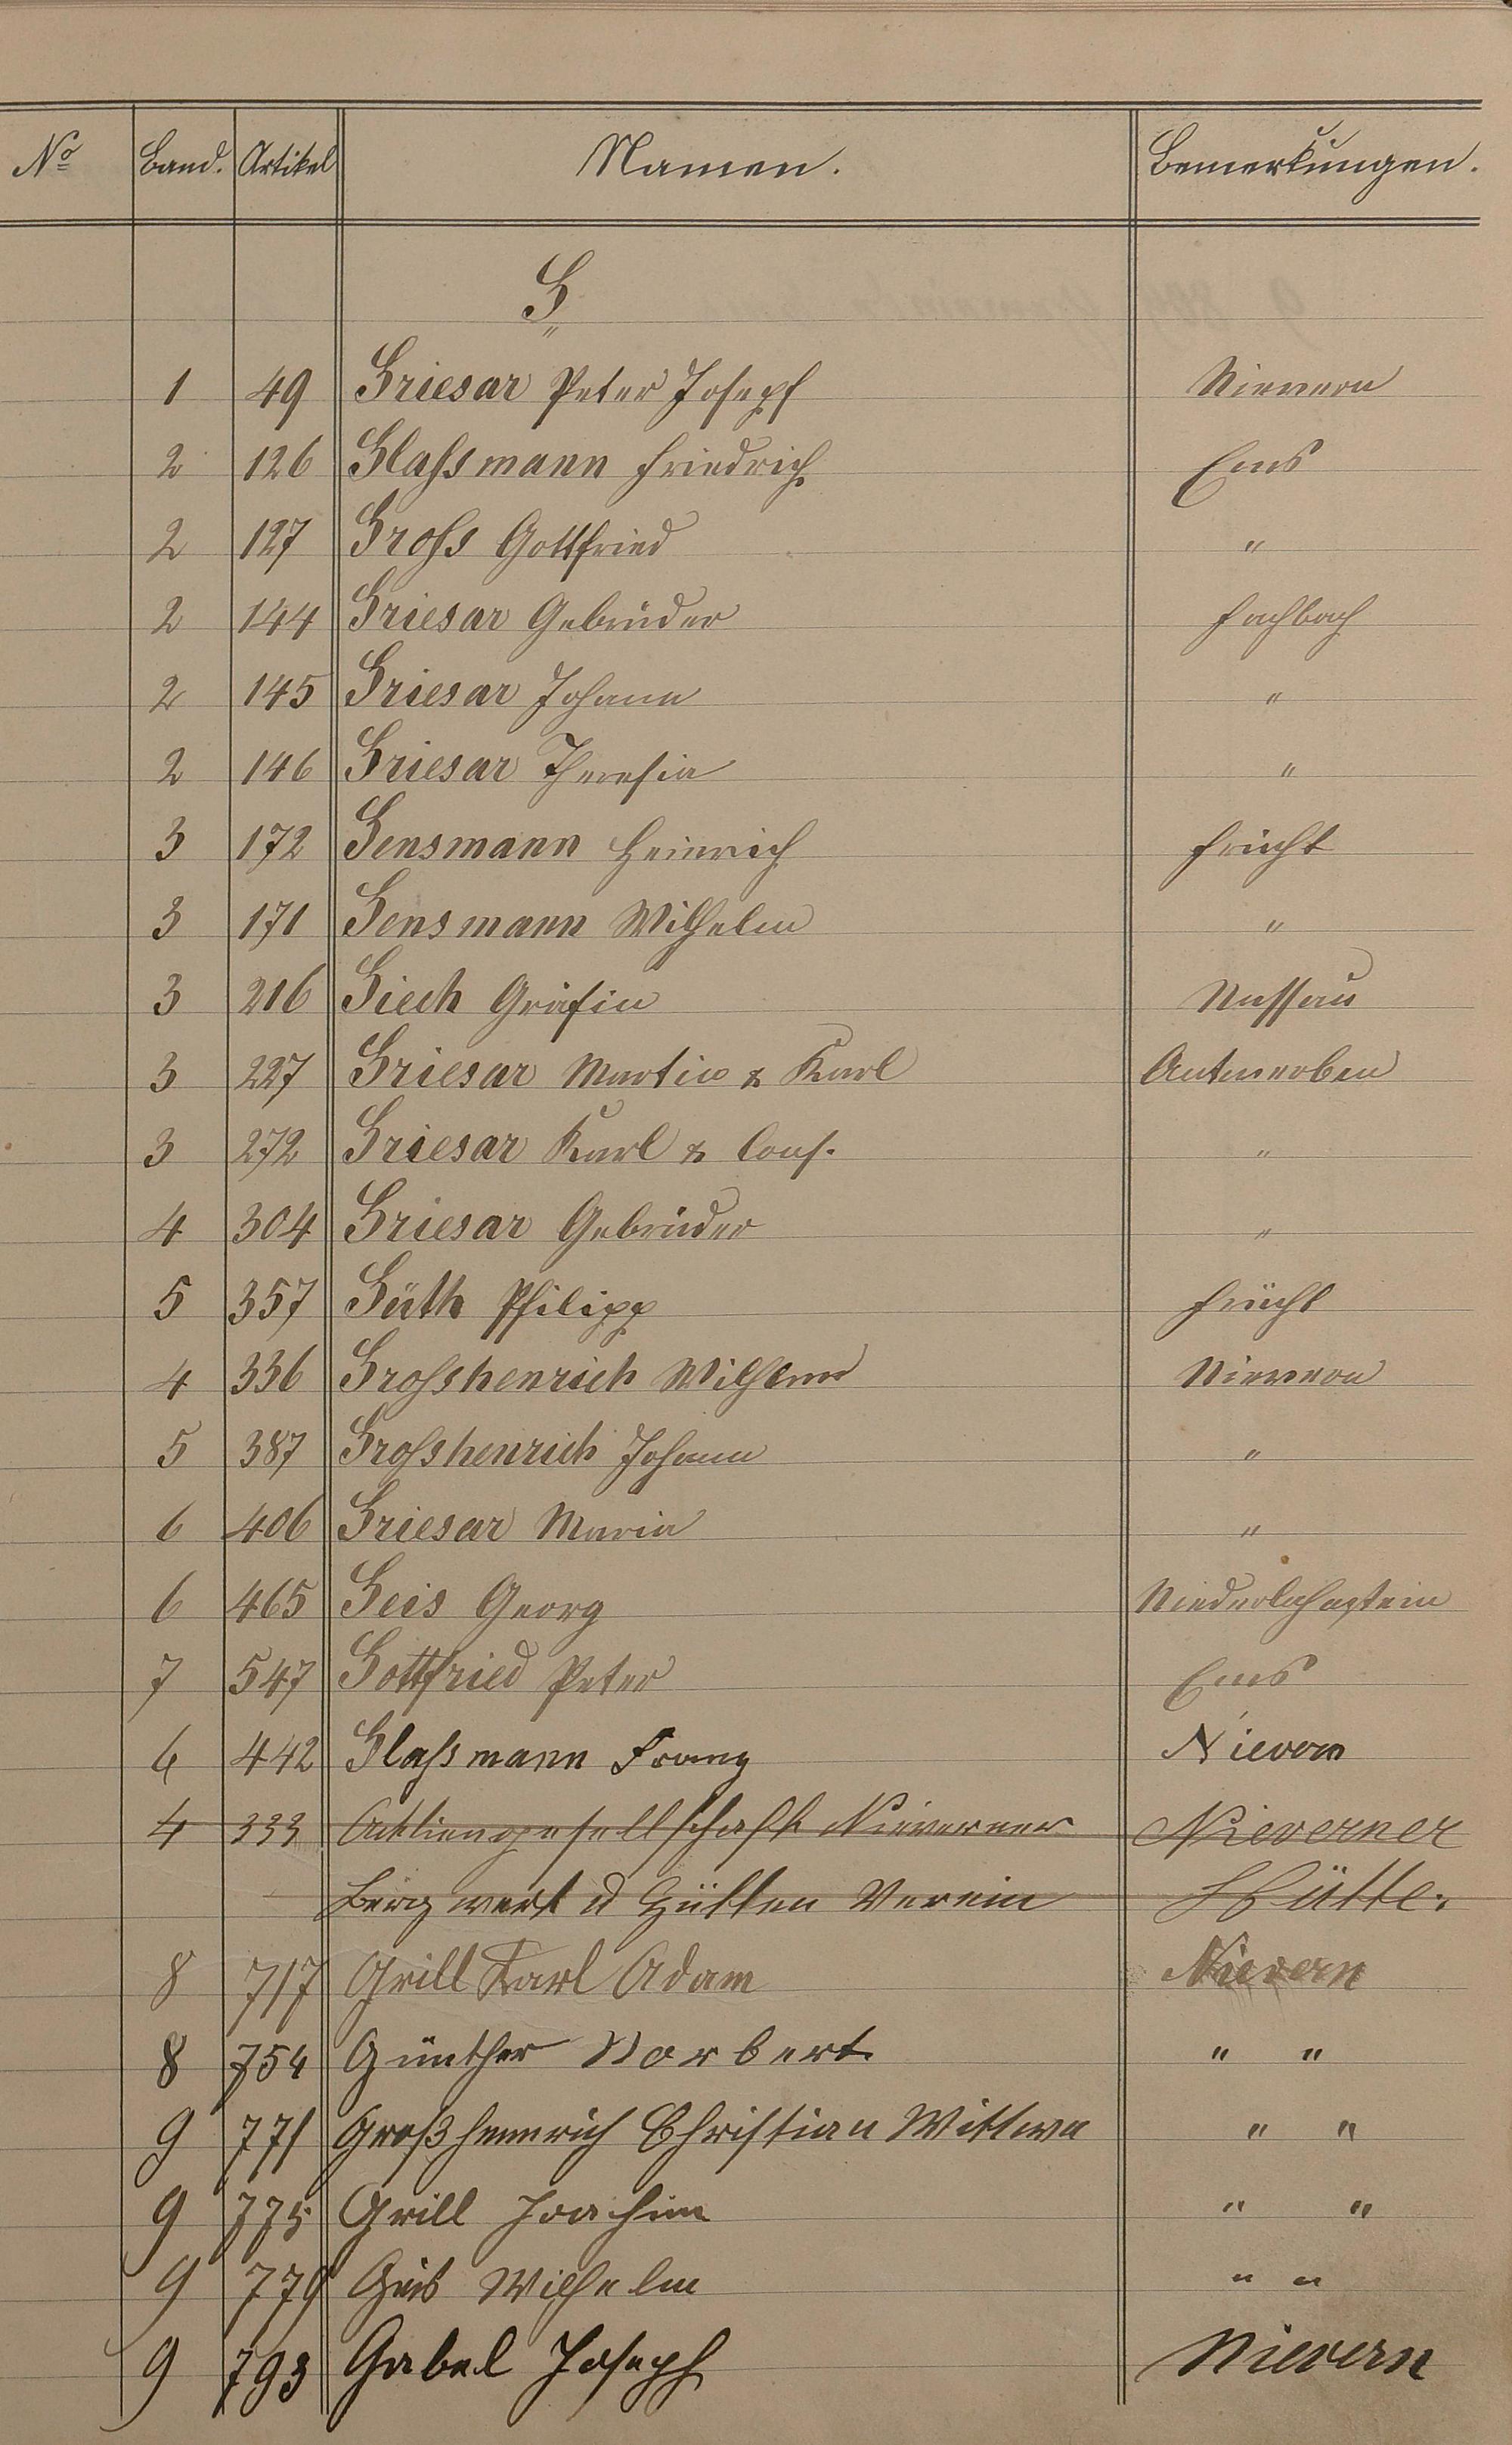 No Band. Artikel Namen. Bemerkungen.
G
1 49 Griesar Peter Joseph Nievern
2 126 Glassmann Friedrich Ems
2 127 Gross Gottfried "
2 144 Griesar Gebrüder Fachbach
2 145 Griesar Johann "
2 146 Griesar Theresia "
3 172 Gensmann Heinrich Frücht
3 171 Gensmann Wilhelm "
3 216 Giech Gräfin Nassau
3 227 Griesar Martin & Karl Antwerben
3 272 Griesar Karl & Cons. "
4 304 Griesar Gebrüder "
5 357 Güth Philipp Frücht
4 336 Grosshenrich Wilhelm Nievern
5 387 Grosshenrich Johann "
6 406 Griesar Maria "
6 465 Geis Georg Niederlahnstein
7 547 Gottfried Peter Ems
6 442 Glassmann Franz Nievern
4 333 Aktiengesellschaft Nieverner Nieverner
Bergwerk u Hütten Verein Hütte.
8 717 Grill Karl Adam Nievern
8 754 Günther Norbert " "
9 771 Großhennrich Christian Wittwe " "
9 775 Grill Joachim " "
9 779 Geis Wilhelm " "
9 793 Gabel Joseph Nievern